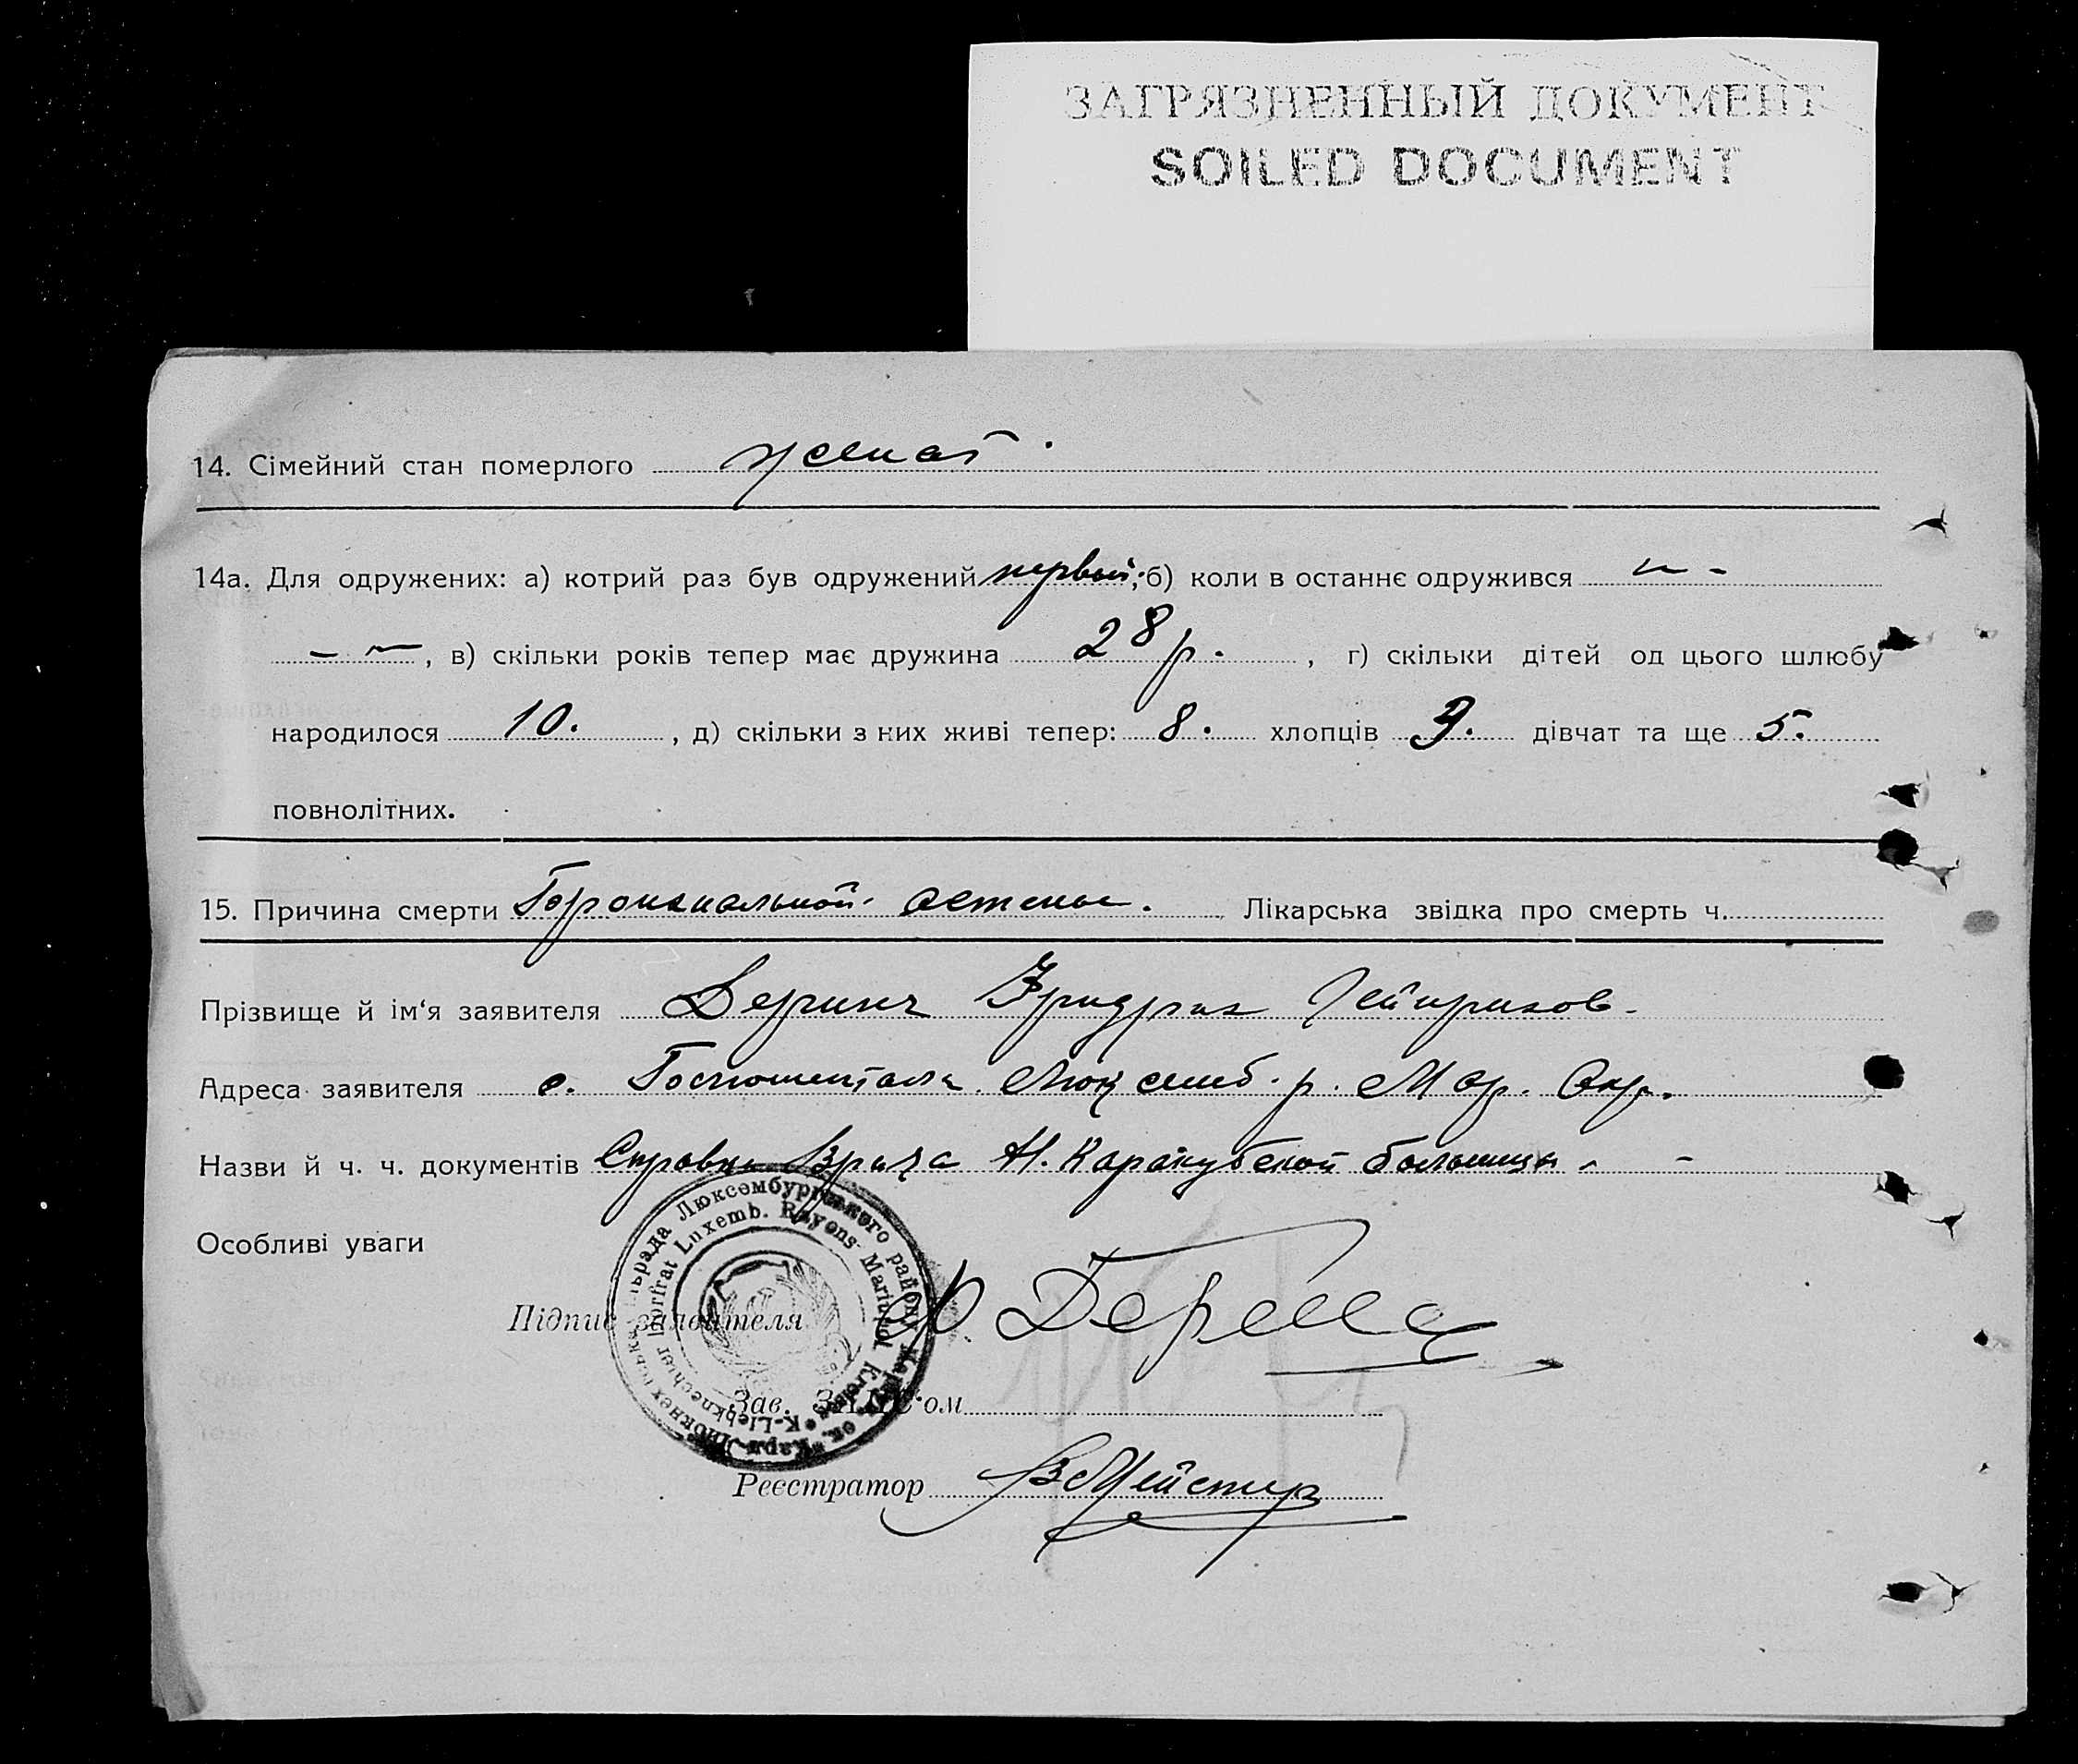 ЗАГРЯЗНЕННЫЙ ДОКУМЕНТ
SOILED DOCUMENT
14. Сімейний стан померлого женат.
14а. Для одружених: а) котрий раз був одружений первый; б) коли в останнє одружився — -
- —, в) скільки років тепер має дружина 28 р., г) скільки дітей од цього шлюбу
народилося 10., д) скільки з них живі тепер: 8. хлопців 3. дівчат та ще 5.
повнолітних.
15. Причина смерти Лікарська звідка про смерть ч.
Прізвище й ім'я заявителя Фридрих Гейнрихов-
Адреса заявителя с. Люксемб. р. Мар. Окр.
Назви й ч. ч. документів Справка Врача Н. Каракубской больницы - -
Особливі уваги
Підпис заявителя
Зав. ЗАГС'ом
Реєстратор В Мейстер
Люксембургського району
Luxemb. Rayons Mariupol Kreises
K-Liebknechter Dorfrat